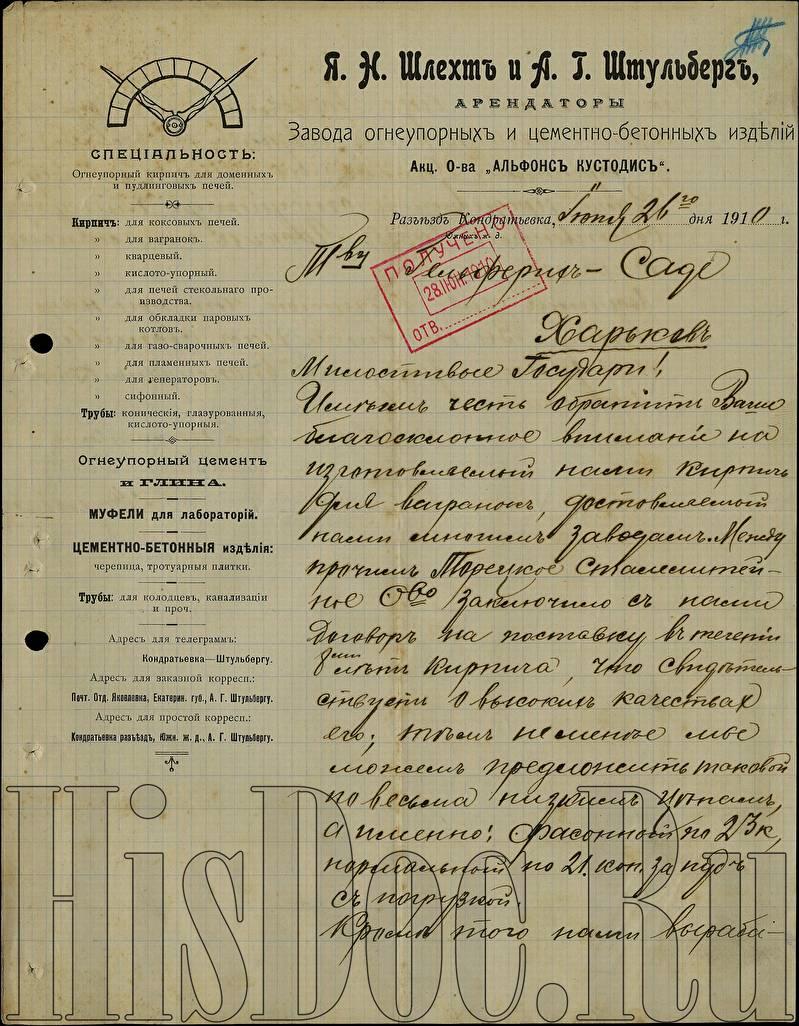 Я. Н. Шлехтъ и А. Г. Штульбергъ,
АРЕНДАТОРЫ
Завода огнеупорныхъ и цементно-бетонныхъ издѣлій
Акц. О-ва „АЛЬФОНСЪ КУСТОДИСЪ“.
Разъѣздъ Кондратьевка, Іюня 26го дня 1910 г.
Южных. ж. д.
ПОЛУЧЕНО
28 ІЮН. 1910
ОТВ.
СПЕЦІАЛЬНОСТЬ:
Огнеупорный кирпич для доменныхъ
и пудлинговыхъ печей.
Кирпичъ: для коксовыхъ печей.
» для вагранокъ.
» кварцевый.
» кислото-упорный.
» для печей стекольнаго про-
изводства.
» для обкладки паровыхъ
котловъ.
» для газо-сварочныхъ печей.
» для пламенныхъ печей.
» для генераторовъ.
» сифонный.
Трубы: коническія, глазурованныя,
кислото-упорныя.
Огнеупорный цементъ
и глина.
МУФЕЛИ для лабораторій.
ЦЕМЕНТНО-БЕТОННЫЯ издѣлія:
черепица, тротуарныя плитки.
Трубы: для колодцевъ, канализаціи
и проч.
Адресъ для телеграммъ:
Кондратьевка—Штульбергу.
Адресъ для заказной корресп.:
Почт. Отд. Яковлевка, Екатерин. губ., А. Г. Штульбергу.
Адресъ для простой корресп.:
Кондратьевка разъѣздъ, Южн. ж. д., А. Г. Штульбергу.
Тву Гельферихъ–Саде
Харьковъ
Милостивые Государи!
Имѣемъ честь обратить Ваше
благосклонное вниманіе на
изготовляемый нами кирпичъ
для вагранокъ, доставляемый
нами многимъ заводамъ. Между
прочимъ Торецкое Сталелитей-
ное Ово заключило съ нами
договоръ на поставку въ теченіи
лѣтъ кирпича, что свидѣтель-
ствуетъ о высокихъ качествахъ
его; тѣмъ неменѣе мы
можемъ предложить таковой
по весьма низкимъ цѣнамъ,
а именно: фасонный по 23 к,
нормальный по 21. коп. за пудъ
съ погрузкой.
Кромѣ того нами вырабá-
HisDoc.Ru